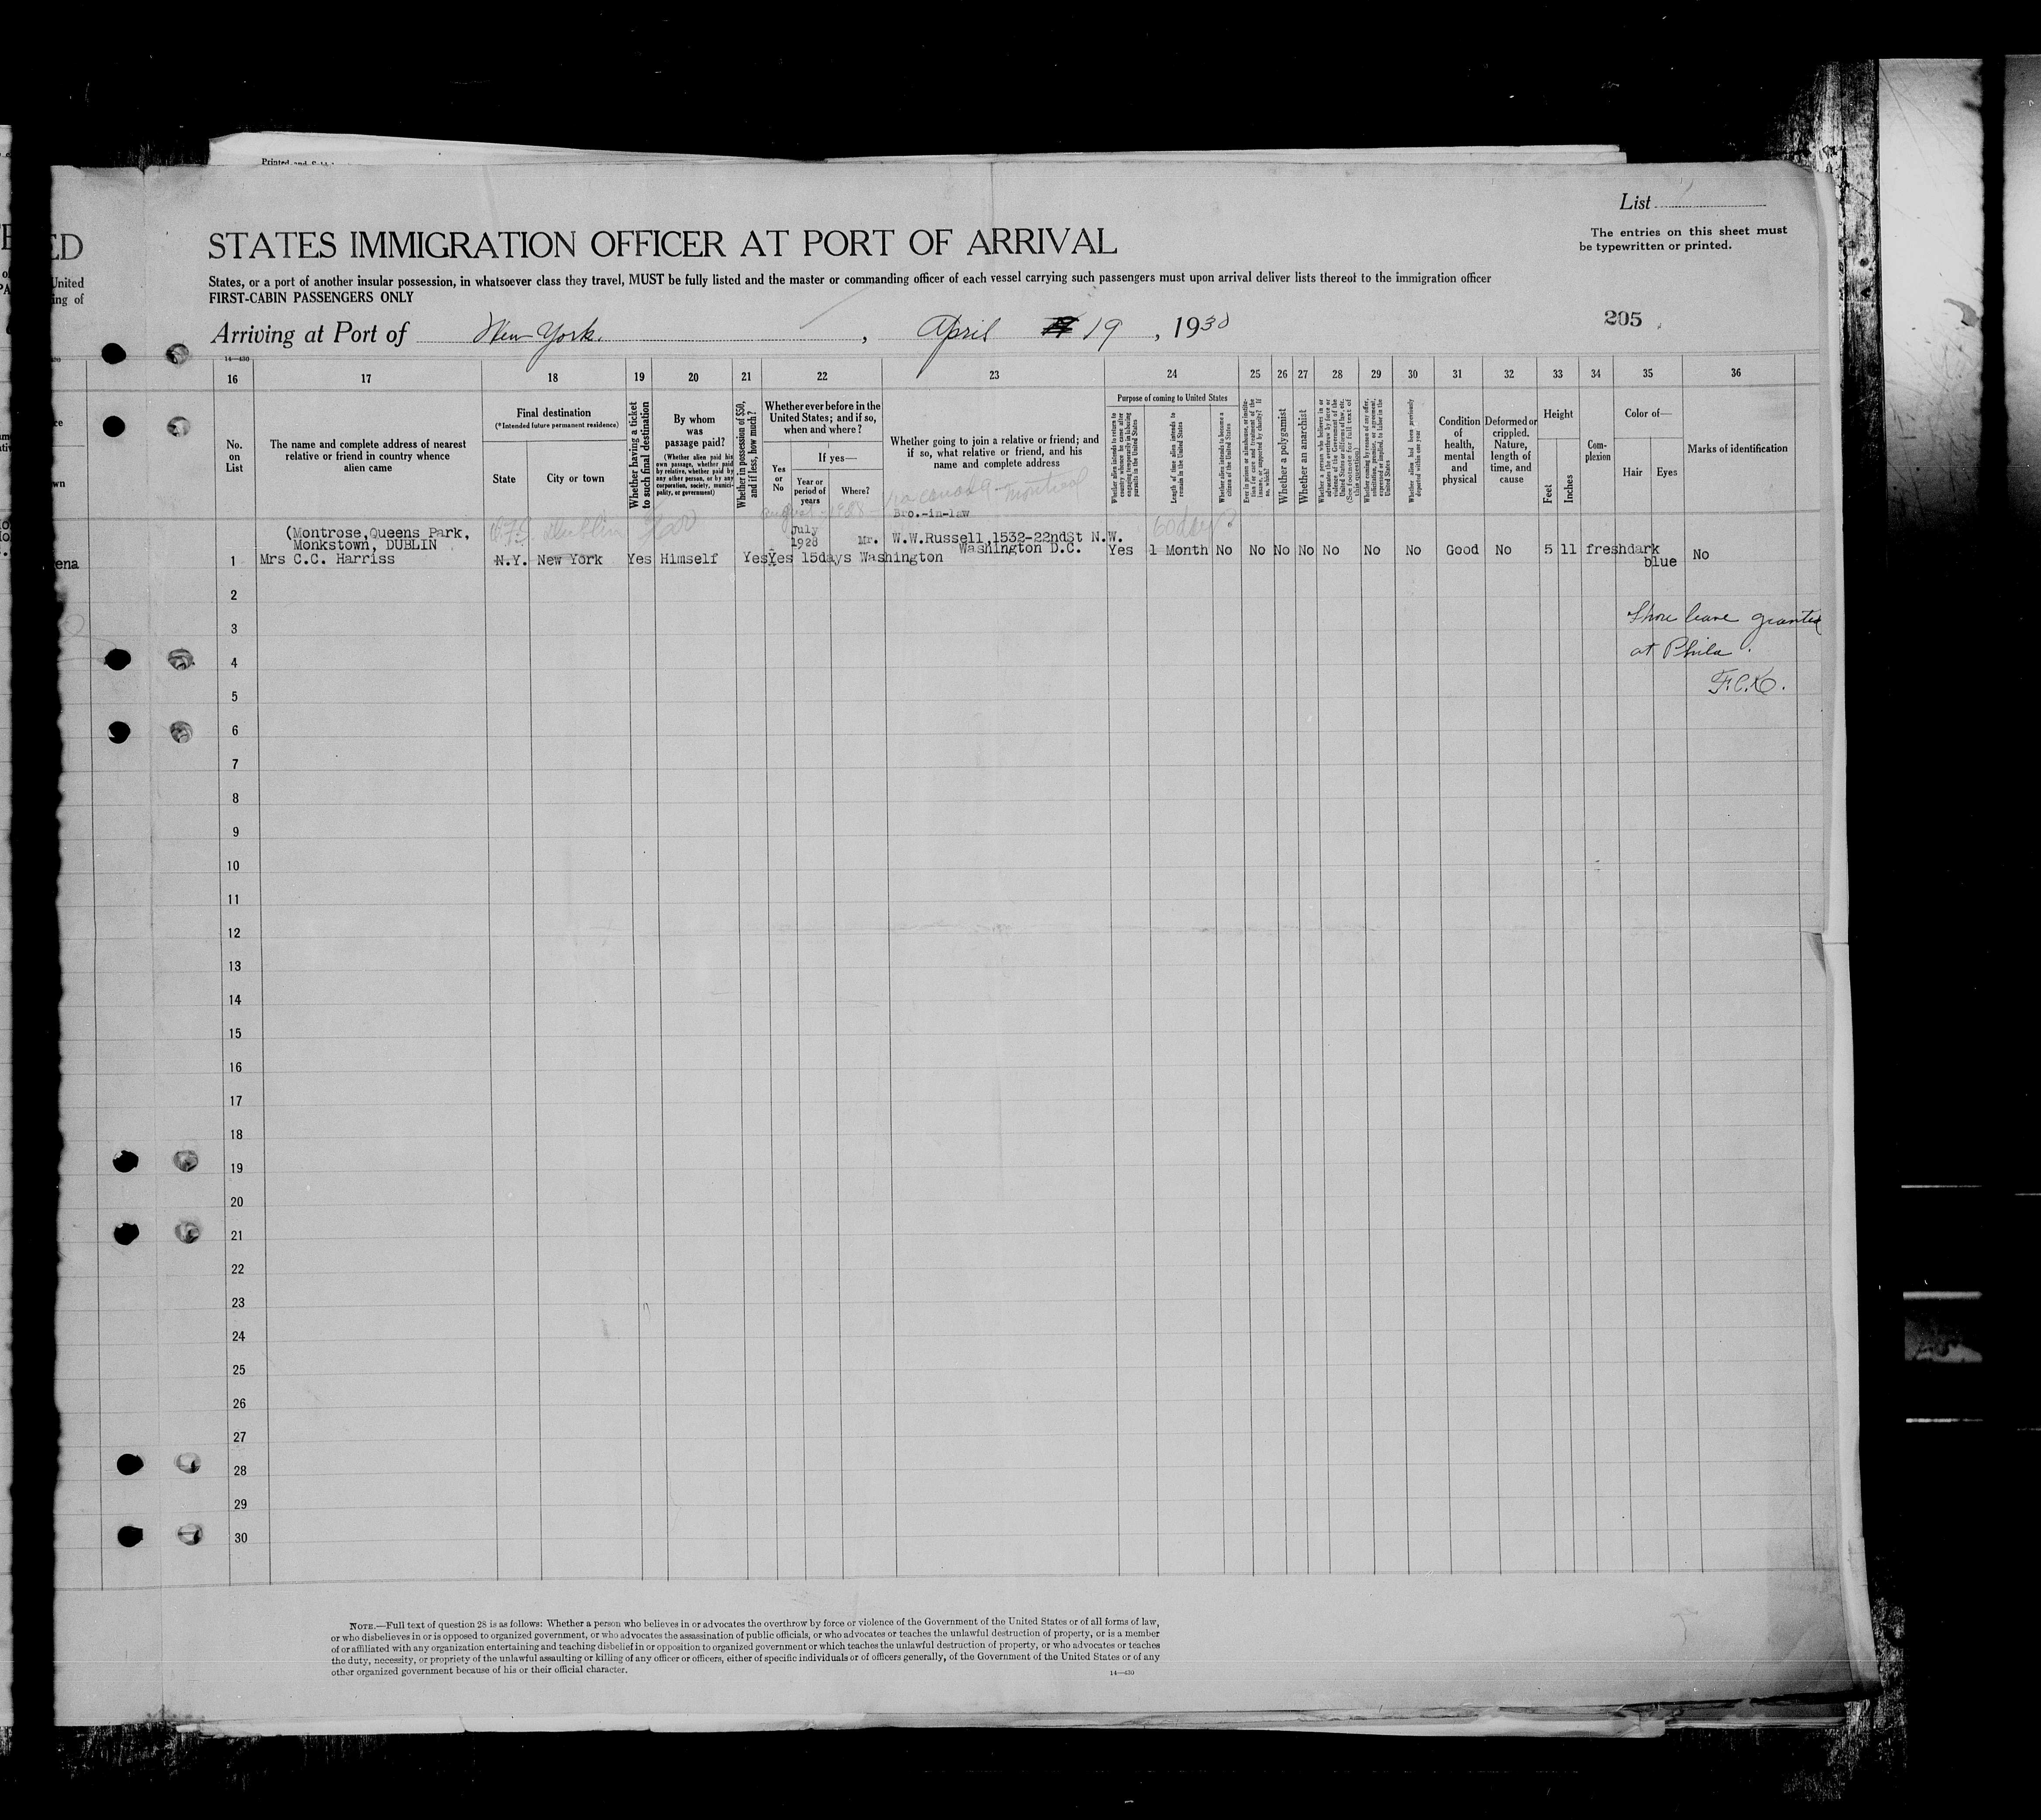 Printed and
List
The entries on this sheet must
be typewritten or printed.
ED
STATES IMMIGRATION OFFICER AT PORT OF ARRIVAL
United
ing of
States, or a port of another insular possession, in whatsoever class they travel, MUST be fully listed and the master or commanding officer of each vessel carrying such passengers must upon arrival deliver lists thereof to the immigration officer
FIRST-CABIN PASSENGERS ONLY
205
Arriving at Port of New York. , April 19 , 1930
14—430
16 17 18 19 20 21 22 23 24 25 26 27 28 29 30 31 32 33 34 35 36
No.
on
List
The name and complete address of nearest
relative or friend in country whence
alien came
Final destination
(*Intended future permanent residence)
State
City or town
Whether having a ticket
to such final destination
By whom
was
passage paid?
(Whether alien paid his
own passage, whether paid
by relative, whether paid by
any other person, or by any
corporation, society, munici-
pality, or government)
Whether in possession of $50,
and if less, how much?
Whether ever before in the
United States; and if so,
when and where?
Yes
or
No
If yes—
Year or
period of
years
Where?
Whether going to join a relative or friend; and
if so, what relative or friend, and his
name and complete address
Purpose of coming to United States
Whether alien intends to return to
country whence he came after
engaging temporarily in laboring
pursuits in the United States
Length of time alien intends to
remain in the United States
Whether alien intends to become a
citizen of the United States
Ever in prison or almshouse, or institu-
tion for care and treatment of the
insane, or supported by charity? If
so, which?
Whether a polygamist
Whether an anarchist
Whether a person who believes in or
advocates the overthrow by force or
violence of the Government of the
United States or all forms of law, etc.
(See footnote for full text of
this question)
Whether coming by reason of any offer,
solicitation, promise, or agreement,
expressed or implied, to labor in the
United States
Whether alien had been previously
deported within one year
Condition
of
health,
mental
and
physical
Deformed or
crippled.
Nature,
length of
time, and
cause
Height
Feet
Inches
Com-
plexion
Color of—
Hair
Eyes
Marks of identification
via Canada - Montreal
August - 1928
Bro.-in-law
Dublin
60 days
(Montrose,Queens Park,
Monkstown, DUBLIN
July
1928
Mr. W.W.Russell,1532-22ndSt N.W.
Washington D.C.
ena
1 Mrs C.C. Harriss N.Y. New York Yes Himself Yes Yes 15days Washington Yes 1 Month No No No No No No No Good No 5 11 fresh dark
blue
No
2
3
4
5
6
7
8
9
10
11
12
13
14
15
16
17
18
19
20
21
22
23
24
25
26
27
28
29
30
Shore leave granted
at Phila.
F.C.K.
NOTE.—Full text of question 28 is as follows: Whether a person who believes in or advocates the overthrow by force or violence of the Government of the United States or of all forms of law,
or who disbelieves in or is opposed to organized government, or who advocates the assassination of public officials, or who advocates or teaches the unlawful destruction of property, or is a member
of or affiliated with any organization entertaining and teaching disbelief in or opposition to organized government or which teaches the unlawful destruction of property, or who advocates or teaches
the duty, necessity, or propriety of the unlawful assaulting or killing of any officer or officers, either of specific individuals or of officers generally, of the Government of the United States or of any
other organized government because of his or their official character.
14—430